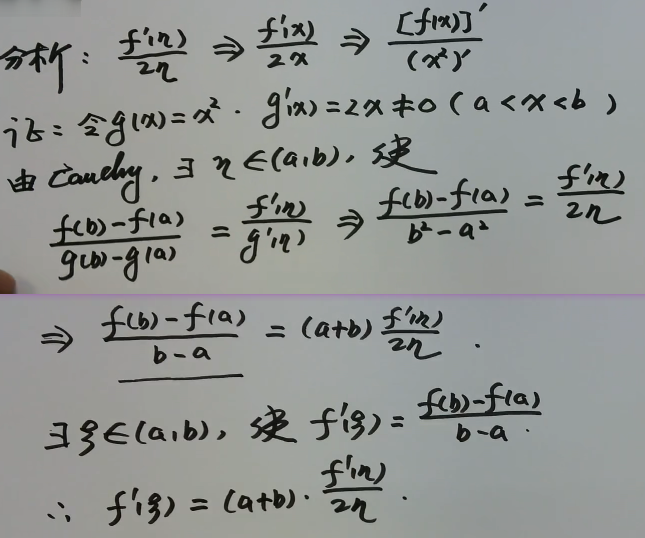 分析: f'(η)/2η ⇒ f'(x)/2x ⇒ [f(x)]'/(x²)'
证: 令g(x)=x². g'(x)=2x≠0 (a<x<b)
由Cauchy, ∃ η∈(a,b), 使
(f(b)-f(a))/(g(b)-g(a)) = f'(η)/g'(η) ⇒ (f(b)-f(a))/(b²-a²) = f'(η)/2η
⇒ (f(b)-f(a))/(b-a) = (a+b) f'(η)/2η.
∃ξ∈(a,b), 使 f'(ξ) = (f(b)-f(a))/(b-a).
∴ f'(ξ) = (a+b)·f'(η)/2η.